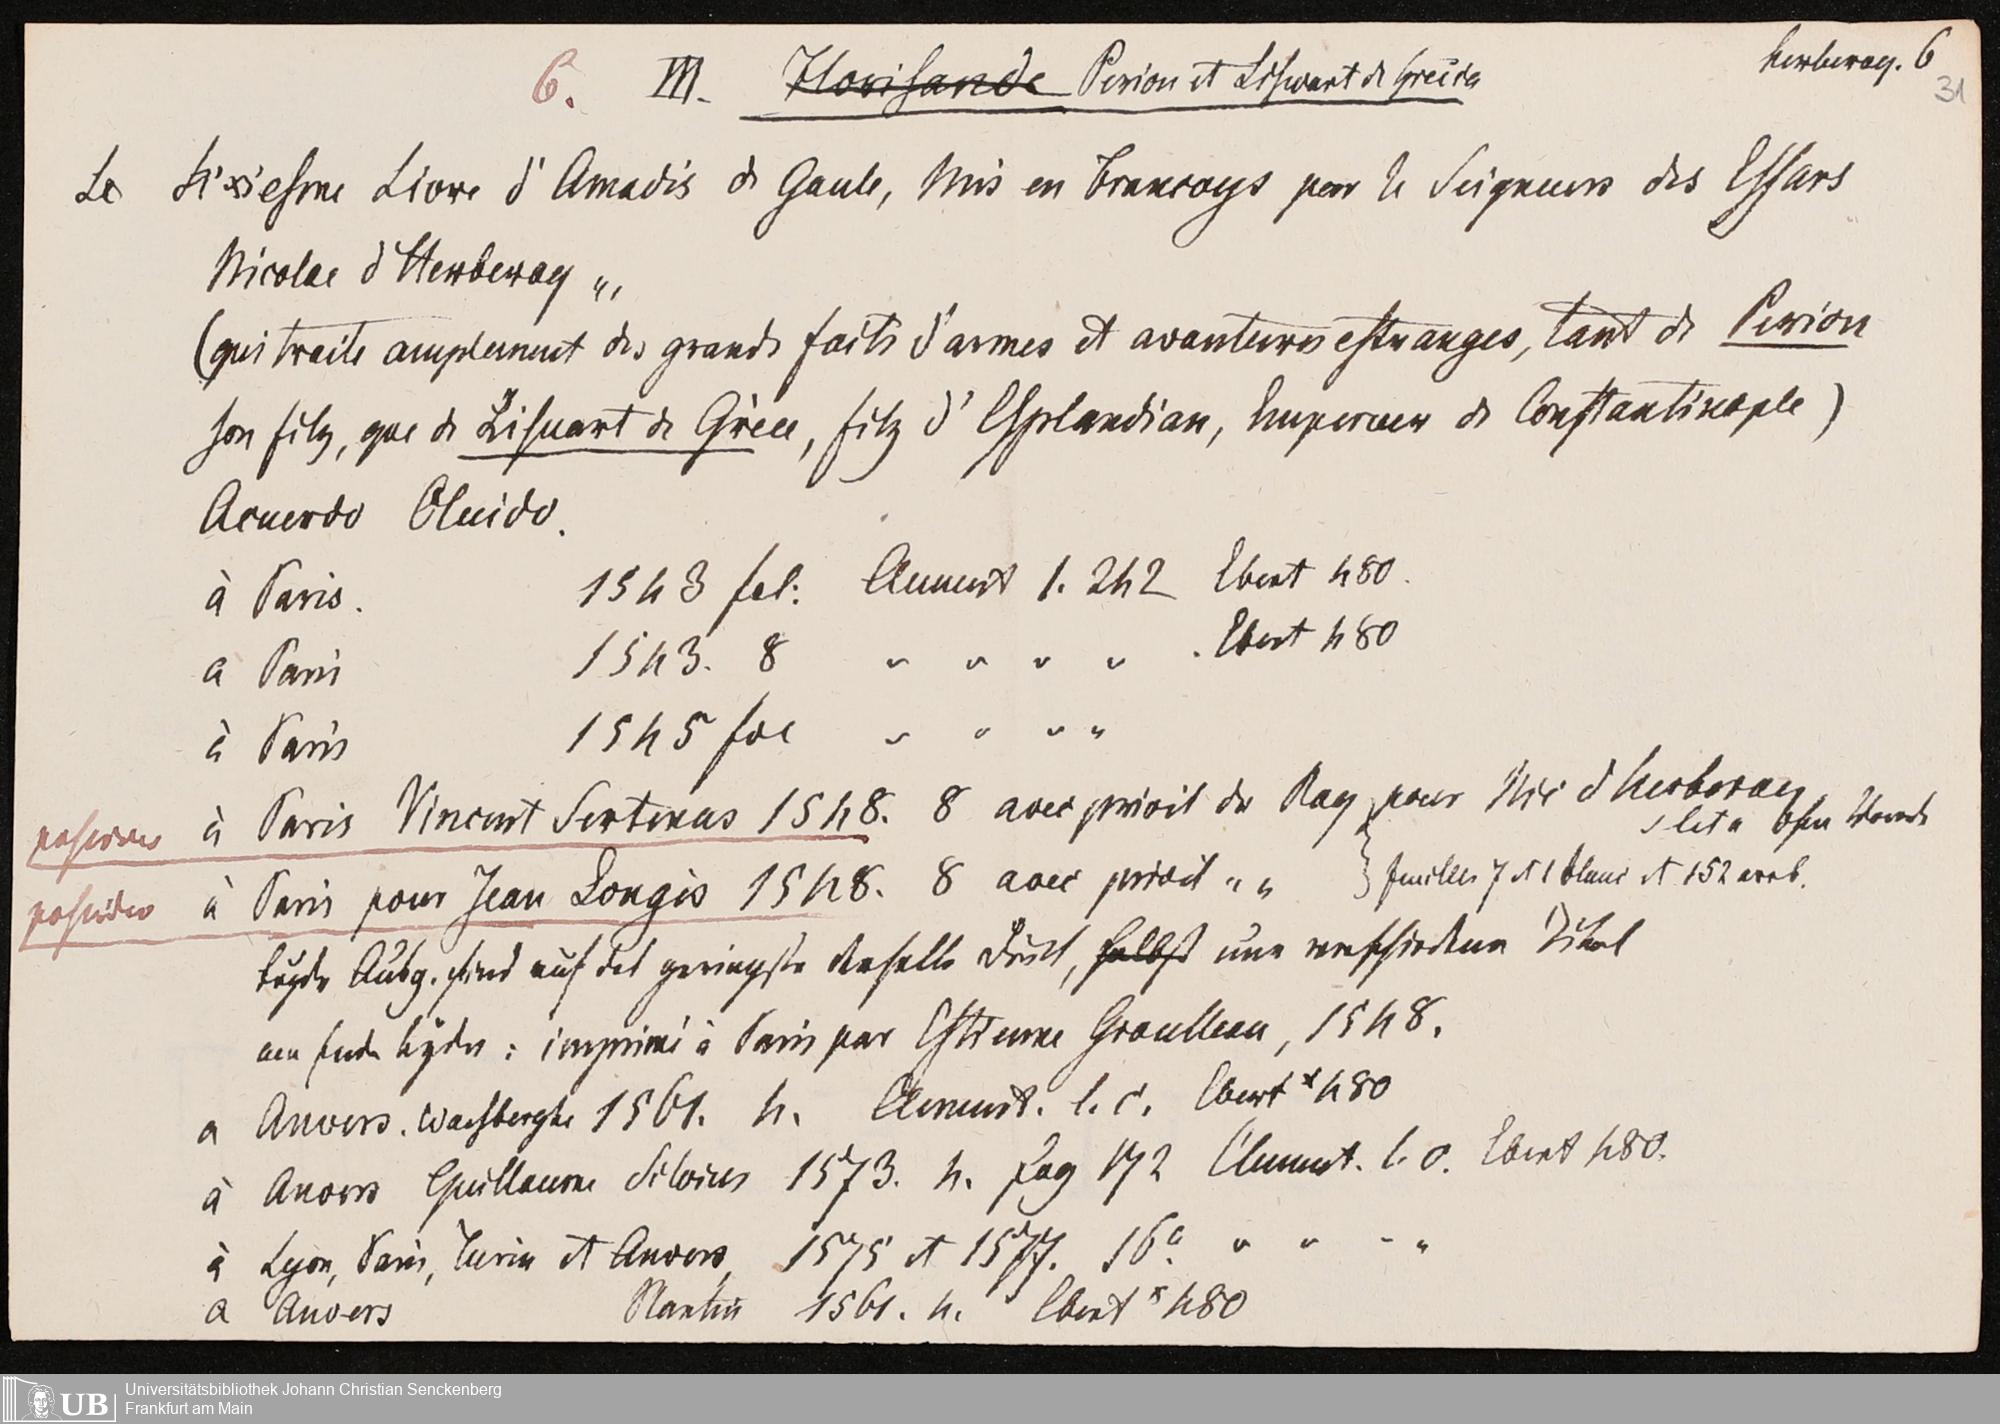 herberay. 6
31
6. III. Florisande Perion et Lisuart de Grecia
Le Sixiesme Livre d'Amadis de Gaule, Mis en Francoys par le Seigneur des Essars
Nicolae d'Herberay „,
(qui traite amplement des grands faits d'armes et avantures estranges, tant de Perion
son filz, que de Lisuart de Grèce, filz d'Esplandian, Empereur de Constantinople)
Acuerdo Oluido.
à Paris. 1543 fol. Clement 1. 242 Ebert 480.
a Paris 1543. 8 „ „ „ „ . Ebert 480
à Paris 1545 fol „ „ „ „
possideo à Paris Vincent Sertenas 1548. 8 avec privil du Roy pour Nic d'herberay
s let a
possideo à Paris pour Jean Longis 1548. 8 avec privil „ „ } feuilles 7 et 1 blanc et 152
beyde Ausg. sind auf das geringste derselbe Druck, selbst nur verschiedene Titel
am Ende beyder : imprimé à Paris par Estienne Groulleau, 1548.
a Anvers. Waesberghe 1561. 4. Clement. l. c. Ebert * 480
à Anvers Guillaume Silvius 1573. 4. pag 172 Clement. l. c. Ebert 480.
à Lyon, Paris, Turin et Anvers, 1575 et 1577. 16° „ „ „ „
a Anvers Plantin 1561. 4. Ebert * 480
UB Universitätsbibliothek Johann Christian Senckenberg
Frankfurt am Main